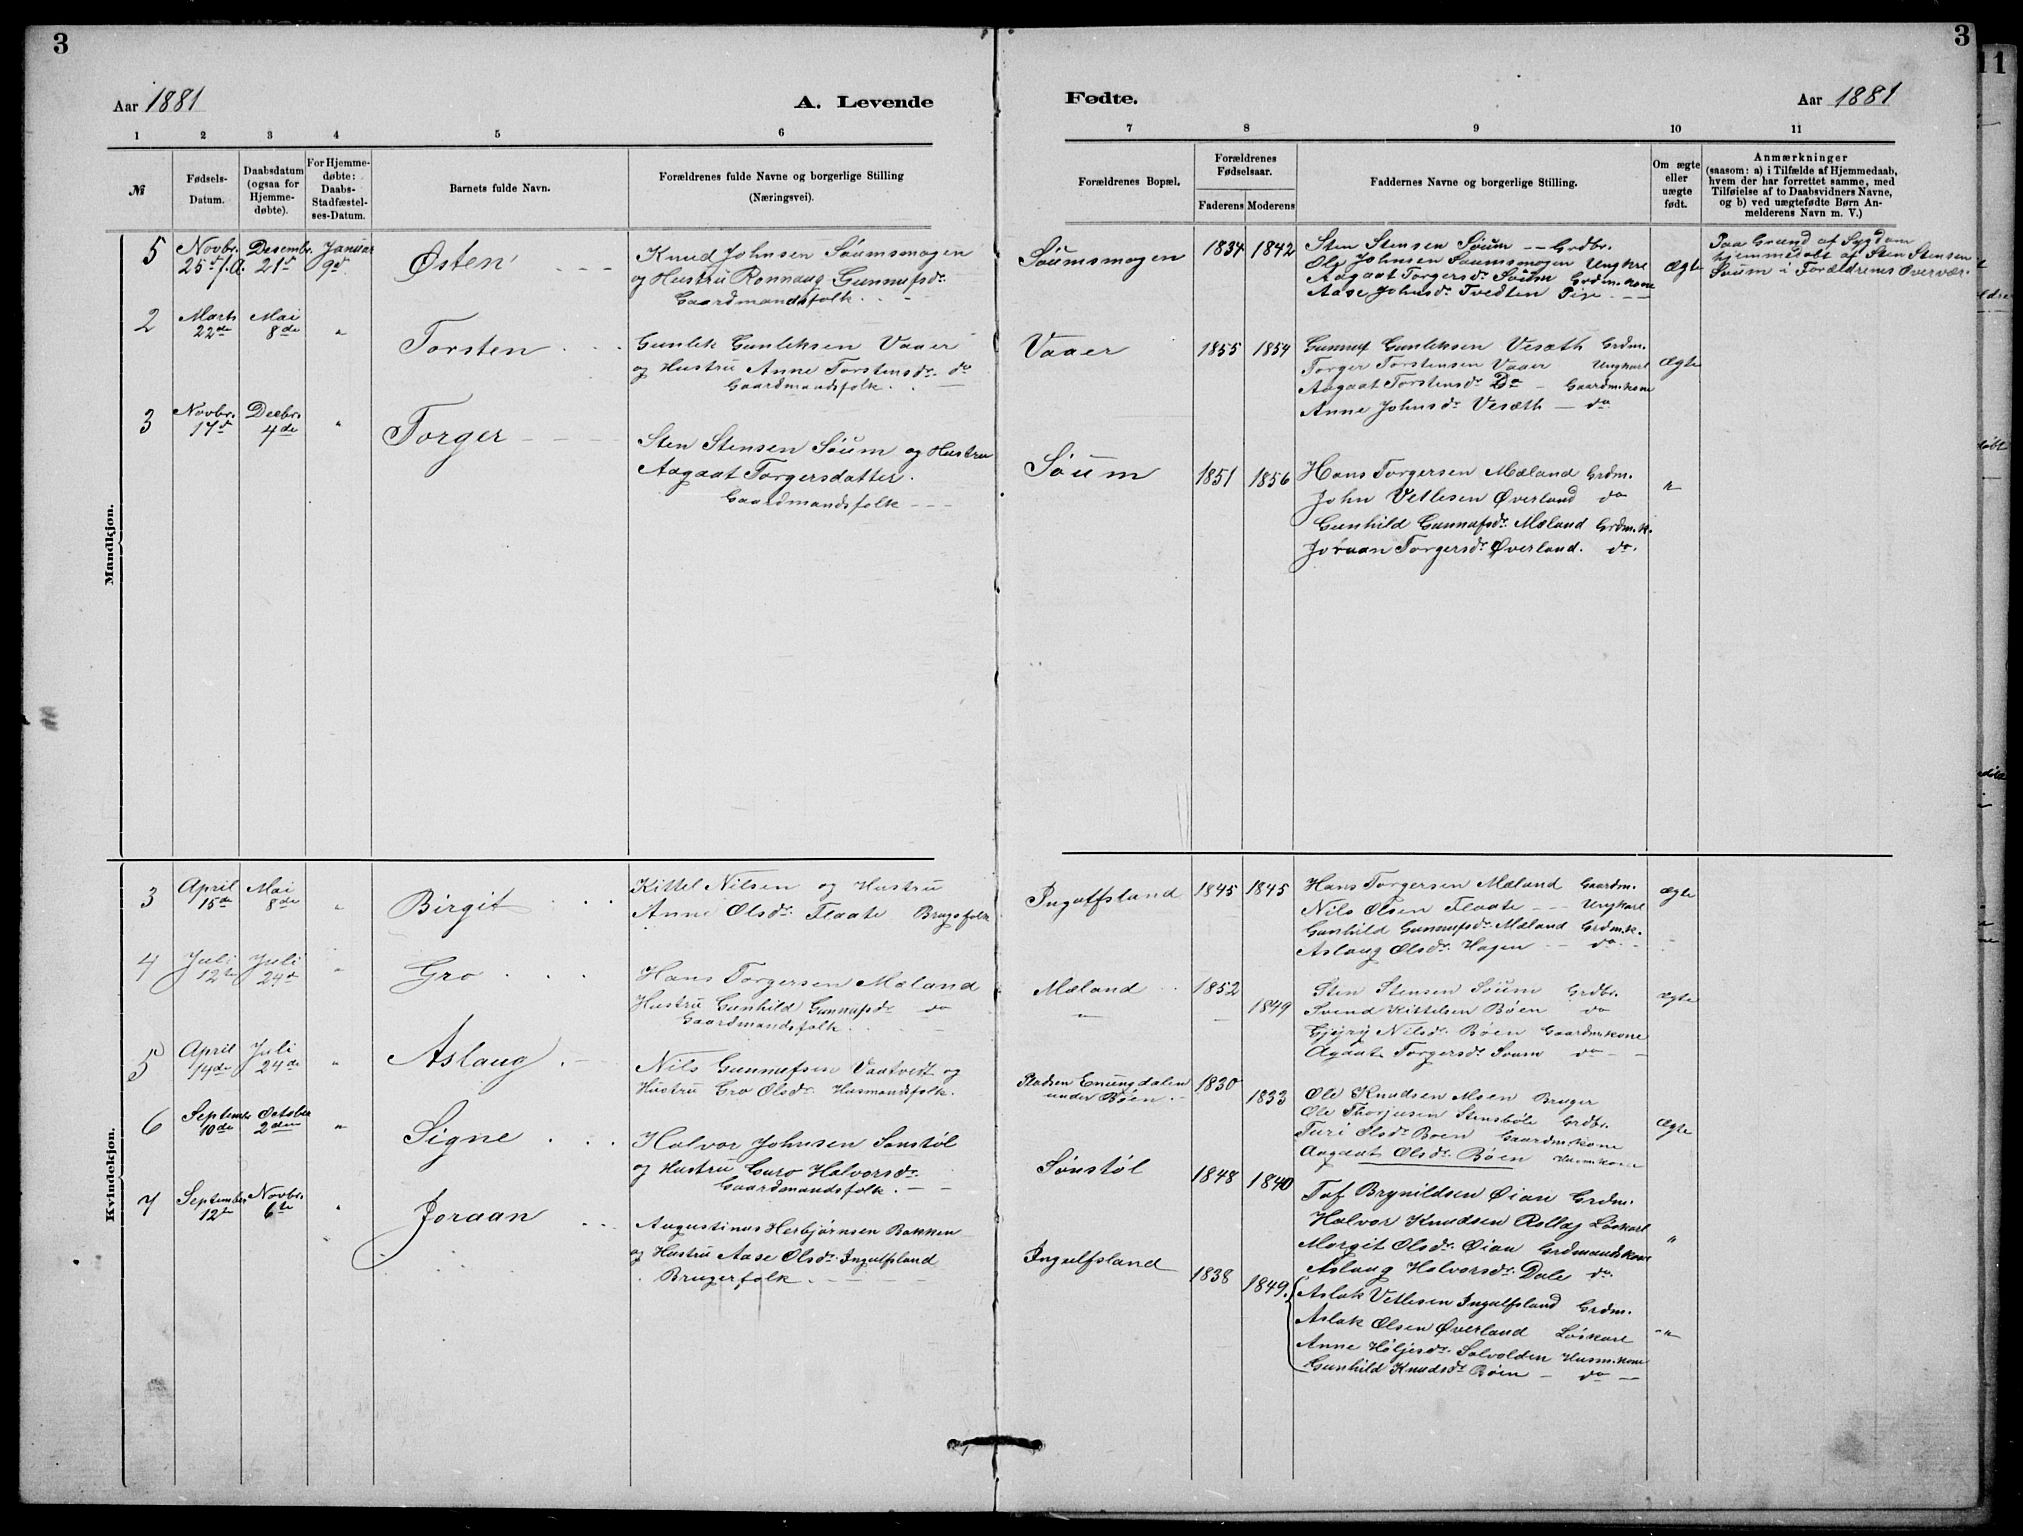 3
3
11
Aar 1881
A. Levende
Fødte.
Aar 1881
1 2 3 4 5 6 7 8 9 10 11
№
Fødsels-
Datum.
Daabsdatum
(ogsaa for
Hjemme-
døbte).
For Hjemme-
døbte:
Daabs-
Stadfæstel-
ses-Datum.
Barnets fulde Navn.
Forældrenes fulde Navne og borgerlige Stilling
(Næringsvei).
Forældrenes Bopæl.
Forældrenes
Fødselsaar.
Faderens Moderens
Faddernes Navne og borgerlige Stilling.
Om ægte
eller
uægte
født.
Anmærkninger
(saasom: a) i Tilfælde af Hjemmedaab,
hvem der har forrettet samme, med
Tilføielse af to Daabsvidners Navne,
og b) ved uægtefødte Børn An-
melderens Navn m. V.)
Mandkjøn.
5
Novbr.
25de f.A.
Desembr.
21de
Januar
9de
Østen
Knud Johnsen Søumsmogen
og Hustru Rønnaug Gunnufsdr.
Gaardmandsfolk
Søumsmogen
1834 1842
Sten Stensen Søum Grdbr.
Ole Johnsen Søumsmogen Ungkrl
Aagaat Torgersdr. Søum Grdm.kone
Aase Johnsdr. Tvedten Pige
Ægte
Paa Grund af Sygdom
hjemmedøbt af Sten Stensen
Søum i Forældrenes Overvær.
2
Marts
22de
Mai
8de
"
Torsten
Gunlek Gunleksen Vaaer
og Hustru Anne Torstensdr. do
Gaardmandsfolk
Vaaer
1855 1854
Gunnuf Gunleksen Vesæth Grdm.
Torger Torstensen Vaaer Ungkarl
Aagaat Torstensdr. Do Gaardm.kone
Anne Johnsdr. Vesæth do
Ægte
3
Novbr.
17de
Decbr.
4de
"
Torger
Sten Stensen Søum og Hustru
Aagaat Torgersdatter.
Gaardmandsfolk
Søum
1851 1856
Hans Torgersen Mæland Grdm.
John Vetlesen Øverland do
Gunhild Gunnufsdr. Mæland Grdm.k.
Joraan Torgersdr. Øverland. do.
"
Kvindekjøn.
3
April
15de
Mai
8de
"
Birgit
Kittel Nilsen og Hustru
Anne Olsdr. Flaate Brugsfolk
Ingulfsland
1845 1845
Hans Torgersen Mæland Gaardm.
Nils Olsen Flaate Ungkarl
Gunhild Gunnufsdr. Mæland Grdm.k.
Aslaug Olsdr. Hagen do
Ægte
4
Juli
12te
Juli
24de
"
Gro
Hans Torgersen Mæland
Hustru Gunhild Gunnufsdr. do
Gaardmandsfolk
Mæland
1852
1849
Sten Stensen Søum Grdbr.
Svend Kittelsen Bøen do
Gjejrj Nilsdr. Bøen Gaardm.kone
Agaat Torgersdr. Søum do
Ægte
5
April
14de
Juli
24de
"
Aslaug
Nils Gunnufsen Vaatvedt og
Hustru Gro Olsdr. Husmandsfolk.
Pladsen Enungdalen
under Bøen.
1830
1833
Ole Knudsen Moen Bruger
Ole Thorjusen Stensbøle Grdbr.
Turi Olsdr. Bøen Gaardm.kone
Aagaat Olsdr. Bøen Husm.kone
Ægte
6
September
10de
October
2den
"
Signe
Halvor Johnsen Sønstøl
og Hustru Guro Halvorsdr.
Gaardmandsfolk.
Sønstøl
1848 1840
Tof Brynildsen Øian Grdm.
Halvor Knudsen Rollag Løskarl
Margit Olsdr. Øian Grdmandskone
Aslaug Halvorsdr. Dale do.
"
7
September
12te
Novbr.
6te
"
Joraan
Augustinus Herbjørnsen Bakken
og Hustru Aase Olsdr. Ingulfsland
Brugerfolk
Ingulfsland
1838 1849.
Aslak Vetlesen Ingulfsland Grdm.
Aslak Olsen Øverland Løskarl
Anne Høljesdr. Solvolden Husm.kone
Gunhild Knudsdr. Bøen do
"